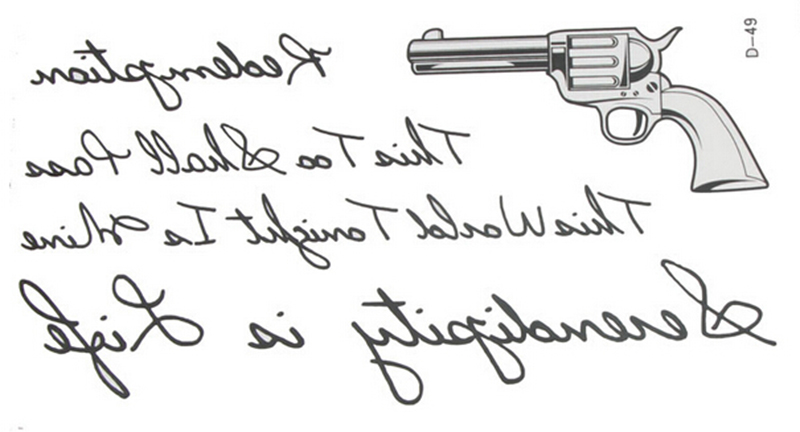 Redemption
D-49
This Too Shall Pass
This World Tonight Is Mine
Serendipity is Life